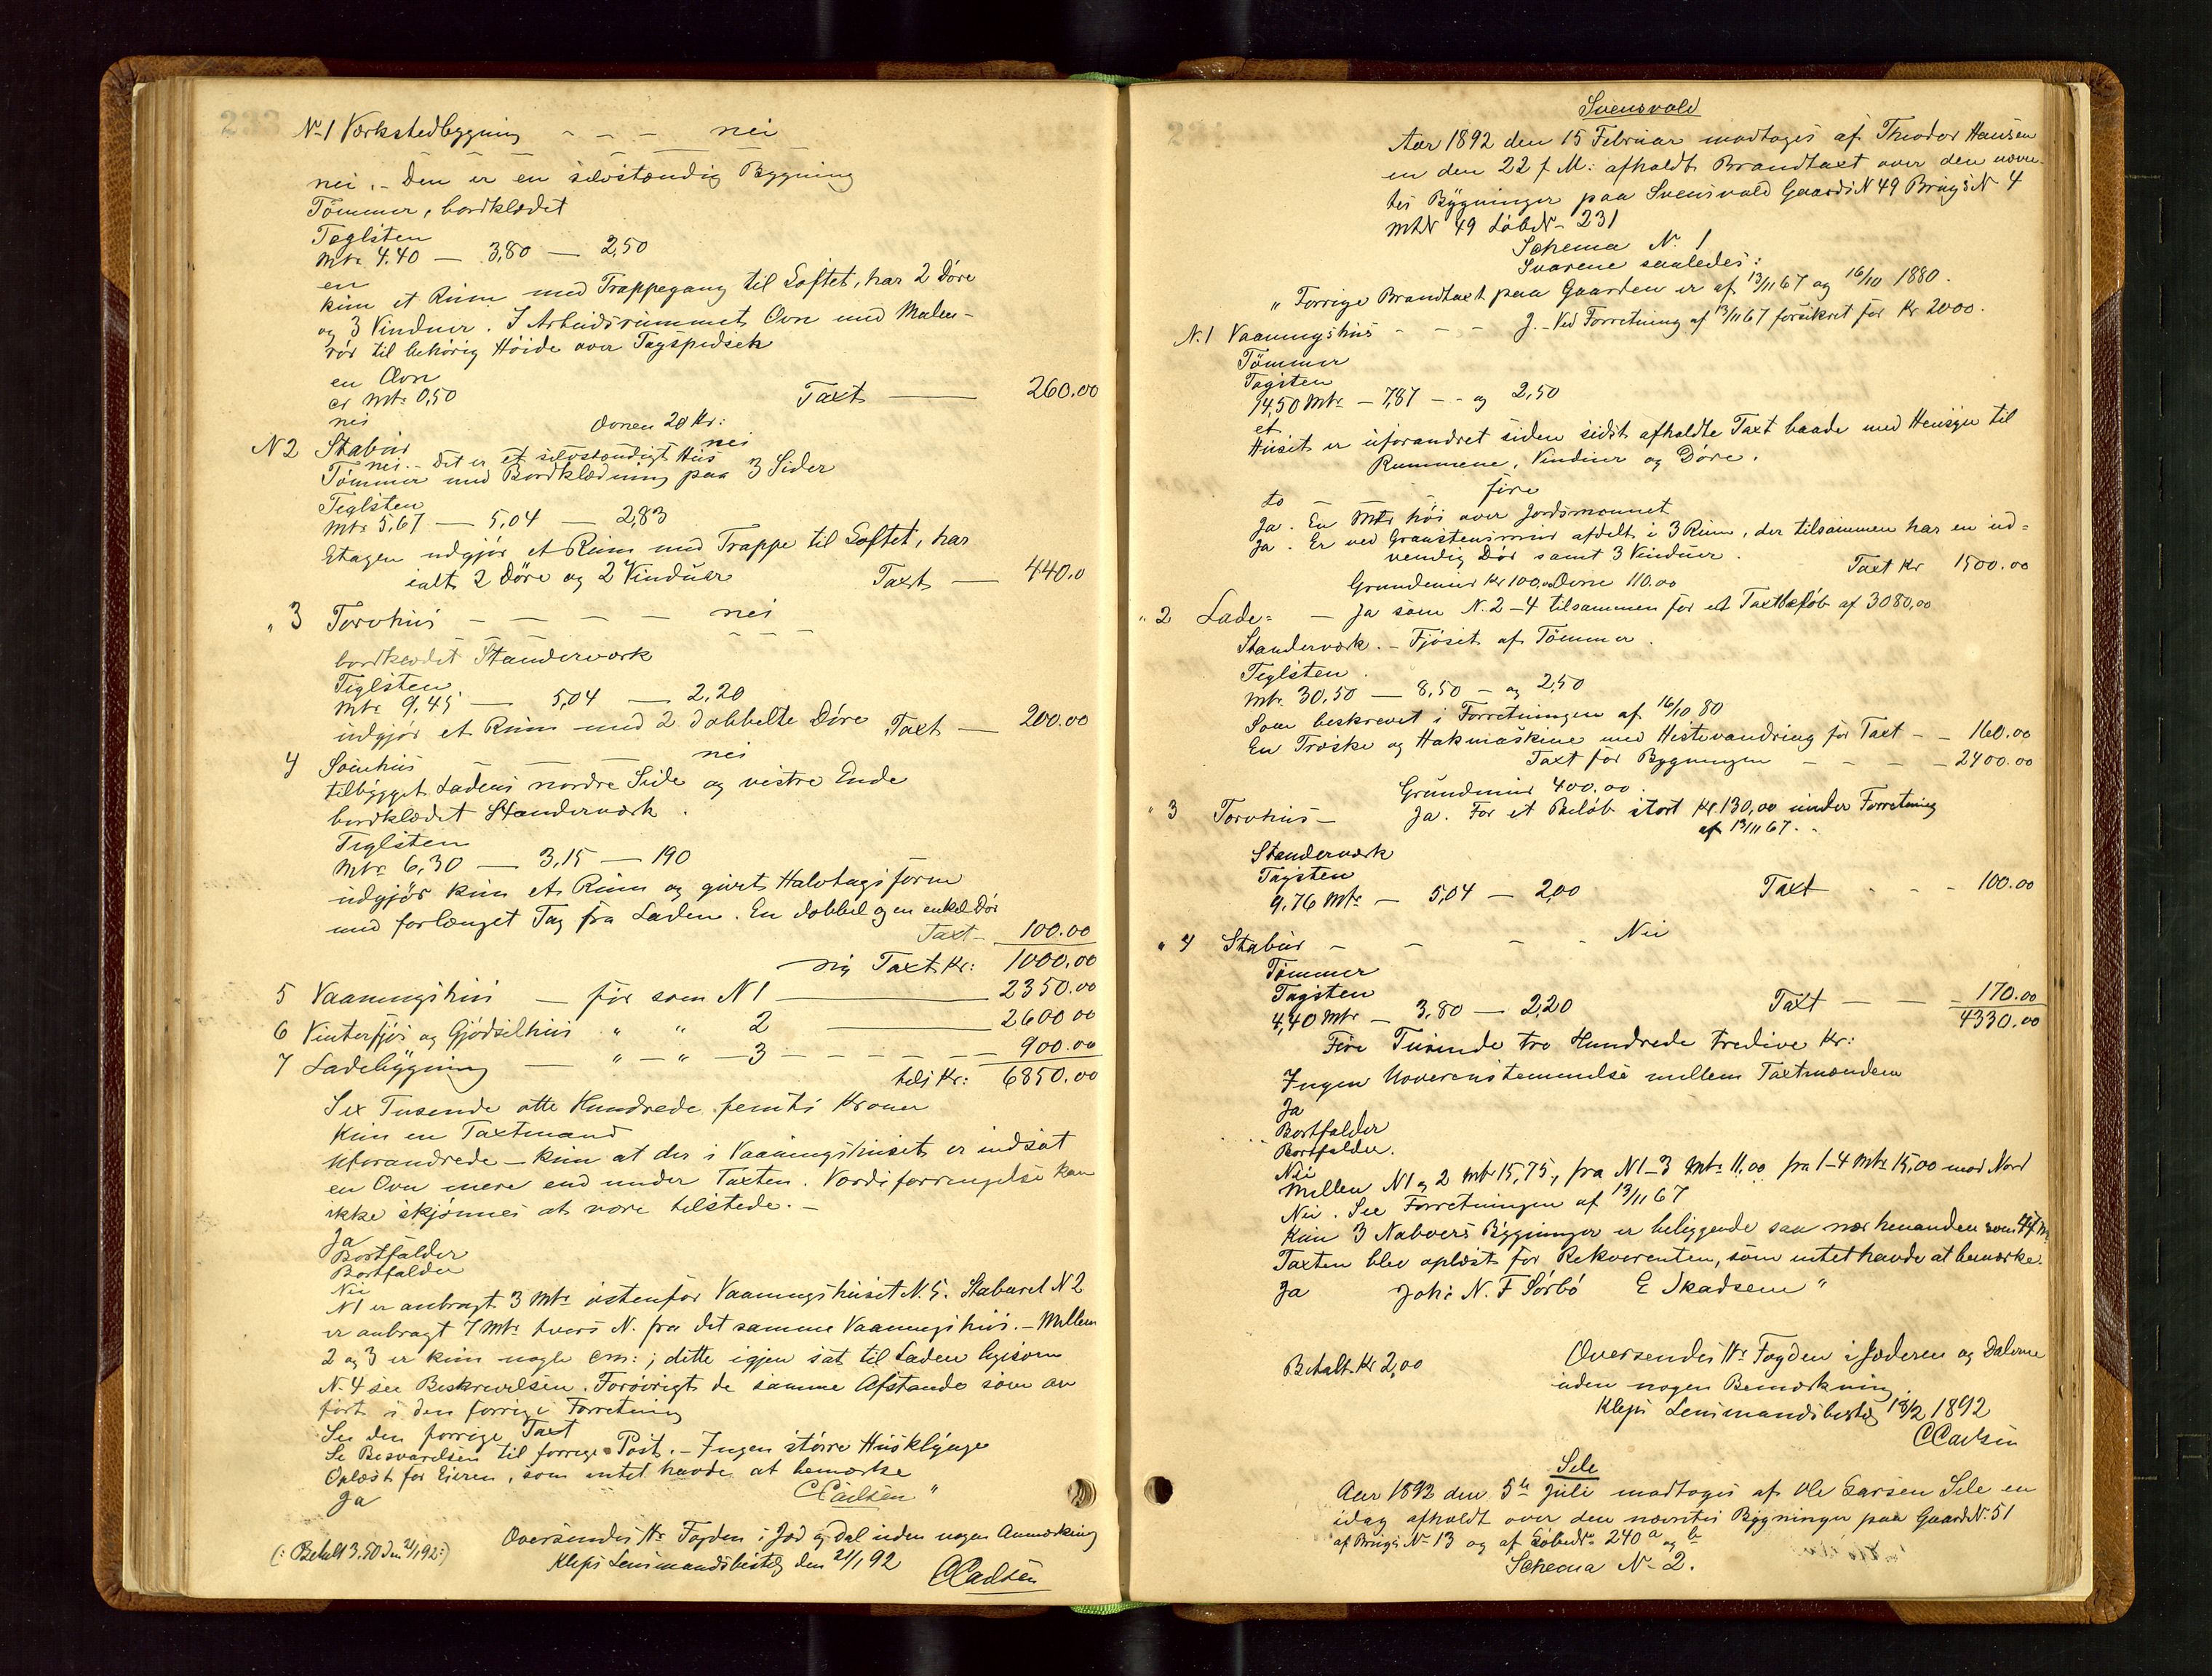 233
N-1 Værkstedbygning - - - nei
nei. - Den er en selvstændig Bygning
Tömmer, bordklædet
Teglsten
Mtr 4.40 — 3,80 — 2,50
en
kun et Rum med Trappegang til Loftet, har 2 Döre
og 3 Vinduer. I Arbeidsrummet Ovn med Malm-
rör til behörig Höide over Tagspidsen
en Ovn
er Mtr 0,50
Taxt — 260.00
nei
Ovnen 20 Kr:
N 2 Stabur nei
nei. - Det er et selvstændigt Hus
Tömmer med Bordklædning paa 3 Sider
Teglsten
Mtr 5,67 — 5,04 — 2,83
Etagen udgjör et Rum med Trappe til Loftet, har
ialt 2 Döre og 2 Vinduer Taxt — 440.0
" 3 Torvhus — — — — nei
bordklædet Standerværk
Teglsten
Mtr 9,45 — 5,04 — 2,20
udgjör et Rum med 2 dobbelte Döre Taxt — 200.00
4 Soinhus — — — nei
tilbygget Ladens nordre Side og vestre Ende
bordklædet Standerværk.
Teglsten
Mtr 6,30 — 3,15 — 190
udgjör kun et Rum og givet Halvtagsform
med forlænget Tag fra Laden. En dobbel og en enkel Dör
Taxt - 100.00
ny Taxt Kr: 1000.00
5 Vaaningshus — för som N 1 — 2350.00
6 Vinterfjös og Gjödselhus " " 2 — 2600 00
7 Ladebygning — " — " — 3 - - - - - 900.00
tils Kr: 6850.00
Sex Tusende otte Hundrede femti Kroner
Kun en Taxtmand
Uforandrede - kun at der i Vaaningshuset er indsat
en Ovn mere end under Taxten. Værdiforringelse kan
ikke skjönnes at være tilstede. -
Ja
Bortfalder
Bortfalder
Nei
N1 er anbragt 3 Mtr östenfor Vaaningshuset N. 5. Staburet N 2
er anbragt 7 Mtr tvers N. fra det samme Vaaningshus. - Mellem
2 og 3 er kun nogle cm: ; dette igjen sat til Laden ligesom
N. 4 see Beskrivelsen. Forövrigt de samme Afstande som an
fört i den forrige Forretning
See den forrige Taxt
Se Besvarelsen til forrige Post. - Ingen större Husklynge
Oplæst for Eieren, som intet havde at bemærke
Ja CCarlsen "
Oversendes Hr Fogden i Jæd og Dal uden nogen Anmærkning
(: Betalt 3,50 den 21/1 92:) Kleps Lensmandsbestlg den 21/1 92
CCarlsen
Svensvold
Aar 1892 den 15 Februar modtoges af Theodor Hansen
en den 22 f M: afholdt Brandtaxt over den nævn-
tes Bygninger paa Svensvold Gaards N 49 Brugs N 4
MtN 49 LöbeN - 231
Schema N. 1
Svarene saaledes:
" Forrige Brandtaxt paa Gaarden er af 13/11 67 og 16/10 1880.
N. 1 Vaaningshus - - - J. - Ved Forretning af 13/11 67 forsikret for Kr 2000.
Tömmer
Tagsten
14,50 Mtr - 7,87 - - og 2,50
et
Huset er uforandret siden sidst afholdte Taxt baade med Hensyn til
Rummene, Vinduer og Döre.
fire
to
Ja. En Mtr höi over Jordsmonnet
Ja. Er ved Graastensmur afdelt i 3 Rum, der tilsammen har en ud-
vendig Dör samt 3 Vinduer. Taxt Kr 1500.00
Grundmur Kr 100,00 Ovne 110.00
" 2 Lade = — Ja som N. 2-4 tilsammen for et Taxtbelöb af 3080,00
Standerværk. - Fjöset af Tömmer.
Teglsten.
Mtr. 30,50 — 8,50 — og 2,50
Som beskrevet i Forretningen af 16/10 80
En Træske og Hakmaskine med Hestevandring för Taxt - - 160.00
Taxt for Bygningen - - - - 2400.00
Grundmur 400.00.
" 3 Torvhus — Ja. For et Belöb stort Kr. 130,00 under Forretning
af 13/11 67. -
Standerværk
Tagsten
9,76 Mtr — 5,04 — 2,00 Taxt - - - 100.00
" 4 Stabur - - - - Nei
Tömmer
Tagsten
4,40 Mtr — 3,80 — 2,20 Taxt — — — 170.00
4330.00
Fire Tusende tre Hundrede tredive Kr:
Ingen Uoverenstemmelse mellem Taxtmændene
Ja
Bortfalder
Bortfalder.
Nei
Mellem N1 og 2 Mtr 15,75, fra N1-3 Mtr 11,00 fra 1-4 Mtr 15,00 mod Nord
Nei. See Forretningen af 13/11 67
Kun 3 Naboers Bygninger er beliggende saa nær hinanden som 44 M
Taxten blev oplæst for Rekvirenten, som intet havde at bemærke.
Ja Joh: N. F Sörbö E Skadsem "
Betalt Kr 2,00
Oversendes Hr Fogden i Jæderen og Dalerne
uden nogen Bemærkning.
Kleps Lensmandsbestlg 18/2 1892
CCarlsen
Sele
Aar 1892 den 5te Juli modtoges af Ole Larsen Sele en
idag afholdt over den nævntes Bygninger paa Gaard N. 51
af Brugs N 13 og af LöbeN. 240 a og b
Schema N - 2.